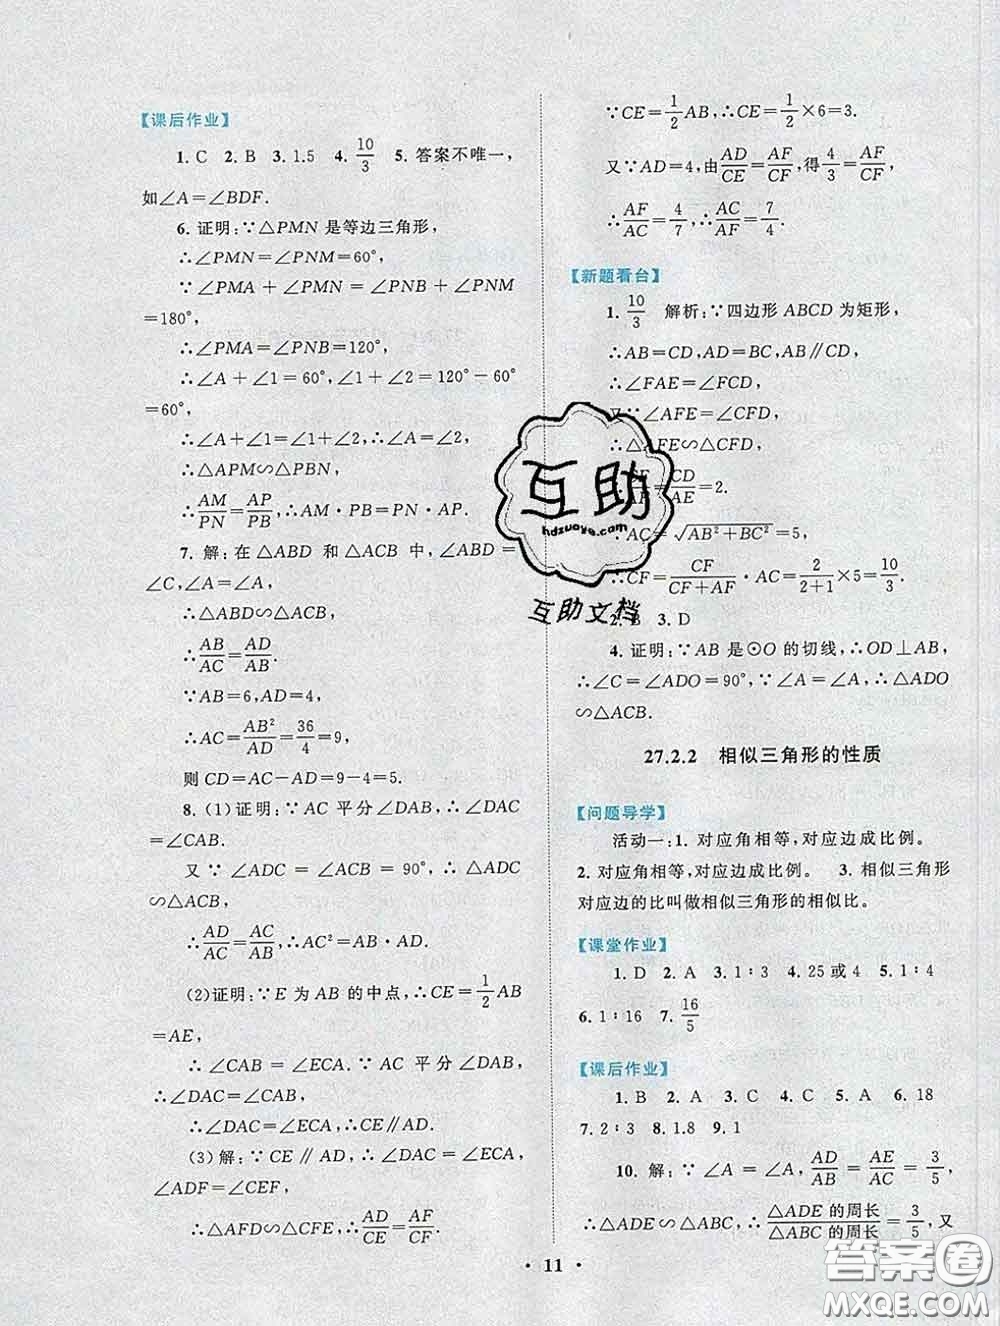 【课后作业】
1. C 2. B 3. 1.5 4. 10/3 5. 答案不唯一，
如∠A＝∠BDF.
6. 证明：∵△PMN 是等边三角形，
∴∠PMN＝∠PNM＝60°，
∴∠PMA＋∠PMN＝∠PNB＋∠PNM
＝180°，
∴∠PMA＝∠PNB＝120°，
∴∠A＋∠1＝60°，∠1＋∠2＝120°－60°
＝60°，
∴∠A＋∠1＝∠1＋∠2，∴∠A＝∠2，
∴△APM∽△PBN，
∴AM/PN＝AP/PB，∴AM·PB＝PN·AP.
7. 解：在△ABD 和△ACB 中，∠ABD＝
∠C，∠A＝∠A，
∴△ABD∽△ACB，
∴AB/AC＝AD/AB.
∵AB＝6，AD＝4，
∴AC＝AB²/AD＝36/4＝9，
则 CD＝AC－AD＝9－4＝5.
8. (1)证明：∵AC 平分∠DAB，∴∠DAC
＝∠CAB.
又∵∠ADC＝∠ACB＝90°，∴△ADC
∽△ACB，
∴AD/AC＝AC/AB，∴AC²＝AB·AD.
(2)证明：∵E 为 AB 的中点，∴CE＝1/2AB
＝AE，
∴∠CAB＝∠ECA. ∵AC 平分∠DAB，
∴∠DAC＝∠CAB，
∴∠DAC＝∠ECA，∴CE∥AD.
(3)解：∵CE∥AD，∴∠DAC＝∠ECA，
∠ADF＝∠CEF，
∴△AFD∽△CFE，∴AD/CE＝AF/CF.
∵CE＝1/2AB，∴CE＝1/2×6＝3.
又∵AD＝4，由AD/CE＝AF/CF，得4/3＝AF/CF，
∴AF/AC＝4/7，∴AC/AF＝7/4.
【新题看台】
1. 10/3 解析：∵四边形 ABCD 为矩形，
∴AB＝CD，AD＝BC，AB∥CD，
∴∠FAE＝∠FCD，
又∵∠AFE＝∠CFD，
FE∽△CFD，
＝CD/AE＝2.
∵AC＝√(AB²＋BC²)＝5，
∴CF＝CF/(CF＋AF)·AC＝2/(2＋1)×5＝10/3.
2. B 3. D
4. 证明：∵AB 是⊙O 的切线，∴OD⊥AB，
∴∠C＝∠ADO＝90°，∵∠A＝∠A，∴△ADO
∽△ACB.
27.2.2 相似三角形的性质
【问题导学】
活动一：1. 对应角相等，对应边成比例。
2. 对应角相等，对应边成比例。 3. 相似三角形
对应边的比叫做相似三角形的相似比。
【课堂作业】
1. D 2. A 3. 1∶3 4. 25或4 5. 1∶4
6. 1∶16 7. 16/5
【课后作业】
1. B 2. A 3. C 4. C 5. A 6. 18
7. 2∶3 8. 1.8 9. 1
10. 解：∵∠A＝∠A，AD/AB＝AE/AC＝3/5，
∴△ADE∽△ABC，∴△ADE 的周长/△ABC 的周长＝3/5，又
· 11 ·
互助
hdzuoye.com
互助文档
答案圈
MXQE.COM